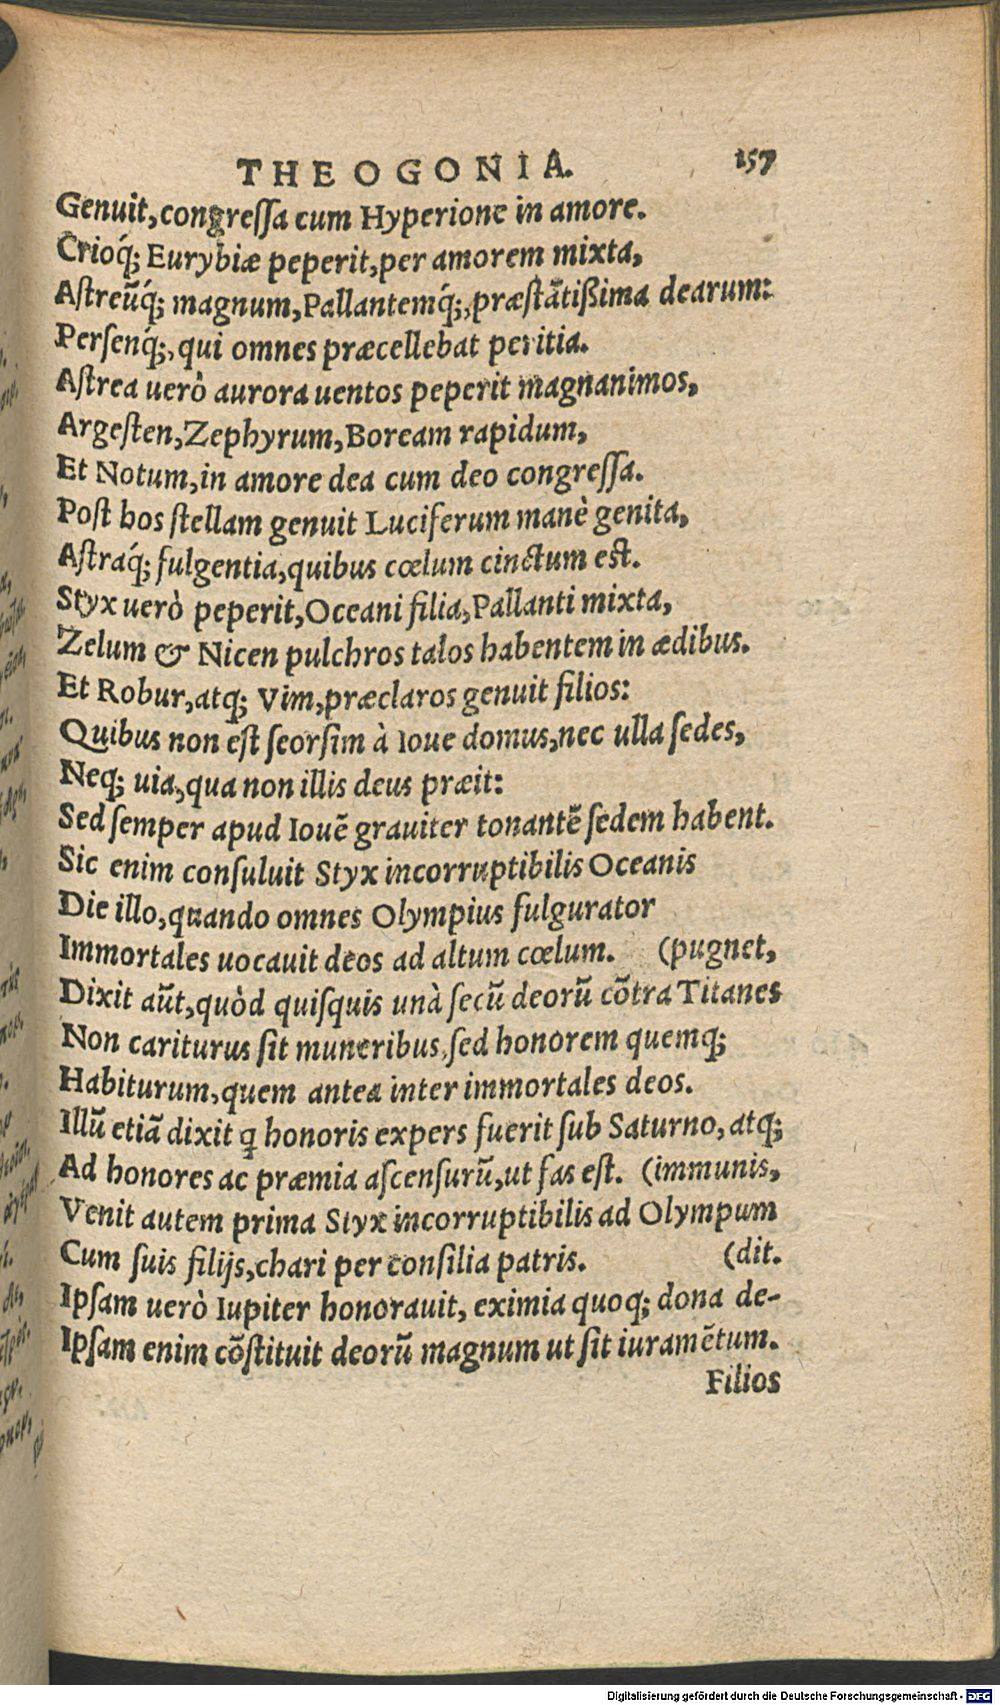 THEOGONIA. 157
Genuit, congreſſa cum Hyperione in amore.
Crioq́; Eurybiæ peperit, per amorem mixta,
Aſtreũq́; magnum, Pallantemq́;, præſtãtißima dearum:
Perſenq́;, qui omnes præcellebat peritia.
Aſtrea uerò aurora uentos peperit magnanimos,
Argeſten, Zephyrum, Boream rapidum,
Et Notum, in amore dea cum deo congreſſa.
Poſt hos ſtellam genuit Luciferum manè genita,
Aſtraq́; fulgentia, quibus cœlum cinctum eſt.
Styx uerò peperit, Oceani filia, Pallanti mixta,
Zelum & Nicen pulchros talos habentem in ædibus.
Et Robur, atq; Vim, præclaros genuit filios:
Quibus non eſt ſeorſim à Ioue domus, nec ulla ſedes,
Neq; uia, qua non illis deus præit:
Sed ſemper apud Iouẽ grauiter tonantẽ ſedem habent.
Sic enim conſuluit Styx incorruptibilis Oceanis
Die illo, quando omnes Olympius fulgurator
Immortales uocauit deos ad altum cœlum. (pugnet,
Dixit aũt, quòd quiſquis unà ſecũ deorũ cõtra Titanes
Non cariturus ſit muneribus, ſed honorem quemq;
Habiturum, quem antea inter immortales deos.
Illũ etiã dixit ꝗ honoris expers fuerit ſub Saturno, atq;
Ad honores ac præmia aſcenſurũ, ut fas eſt. (immunis,
Venit autem prima Styx incorruptibilis ad Olympum
Cum ſuis filijs, chari per conſilia patris. (dit.
Ipſam uerò Iupiter honorauit, eximia quoq; dona de-
Ipſam enim cõſtituit deorũ magnum ut ſit iuramẽtum.
Filios
Digitalisierung gefördert durch die Deutsche Forschungsgemeinschaft - DFG